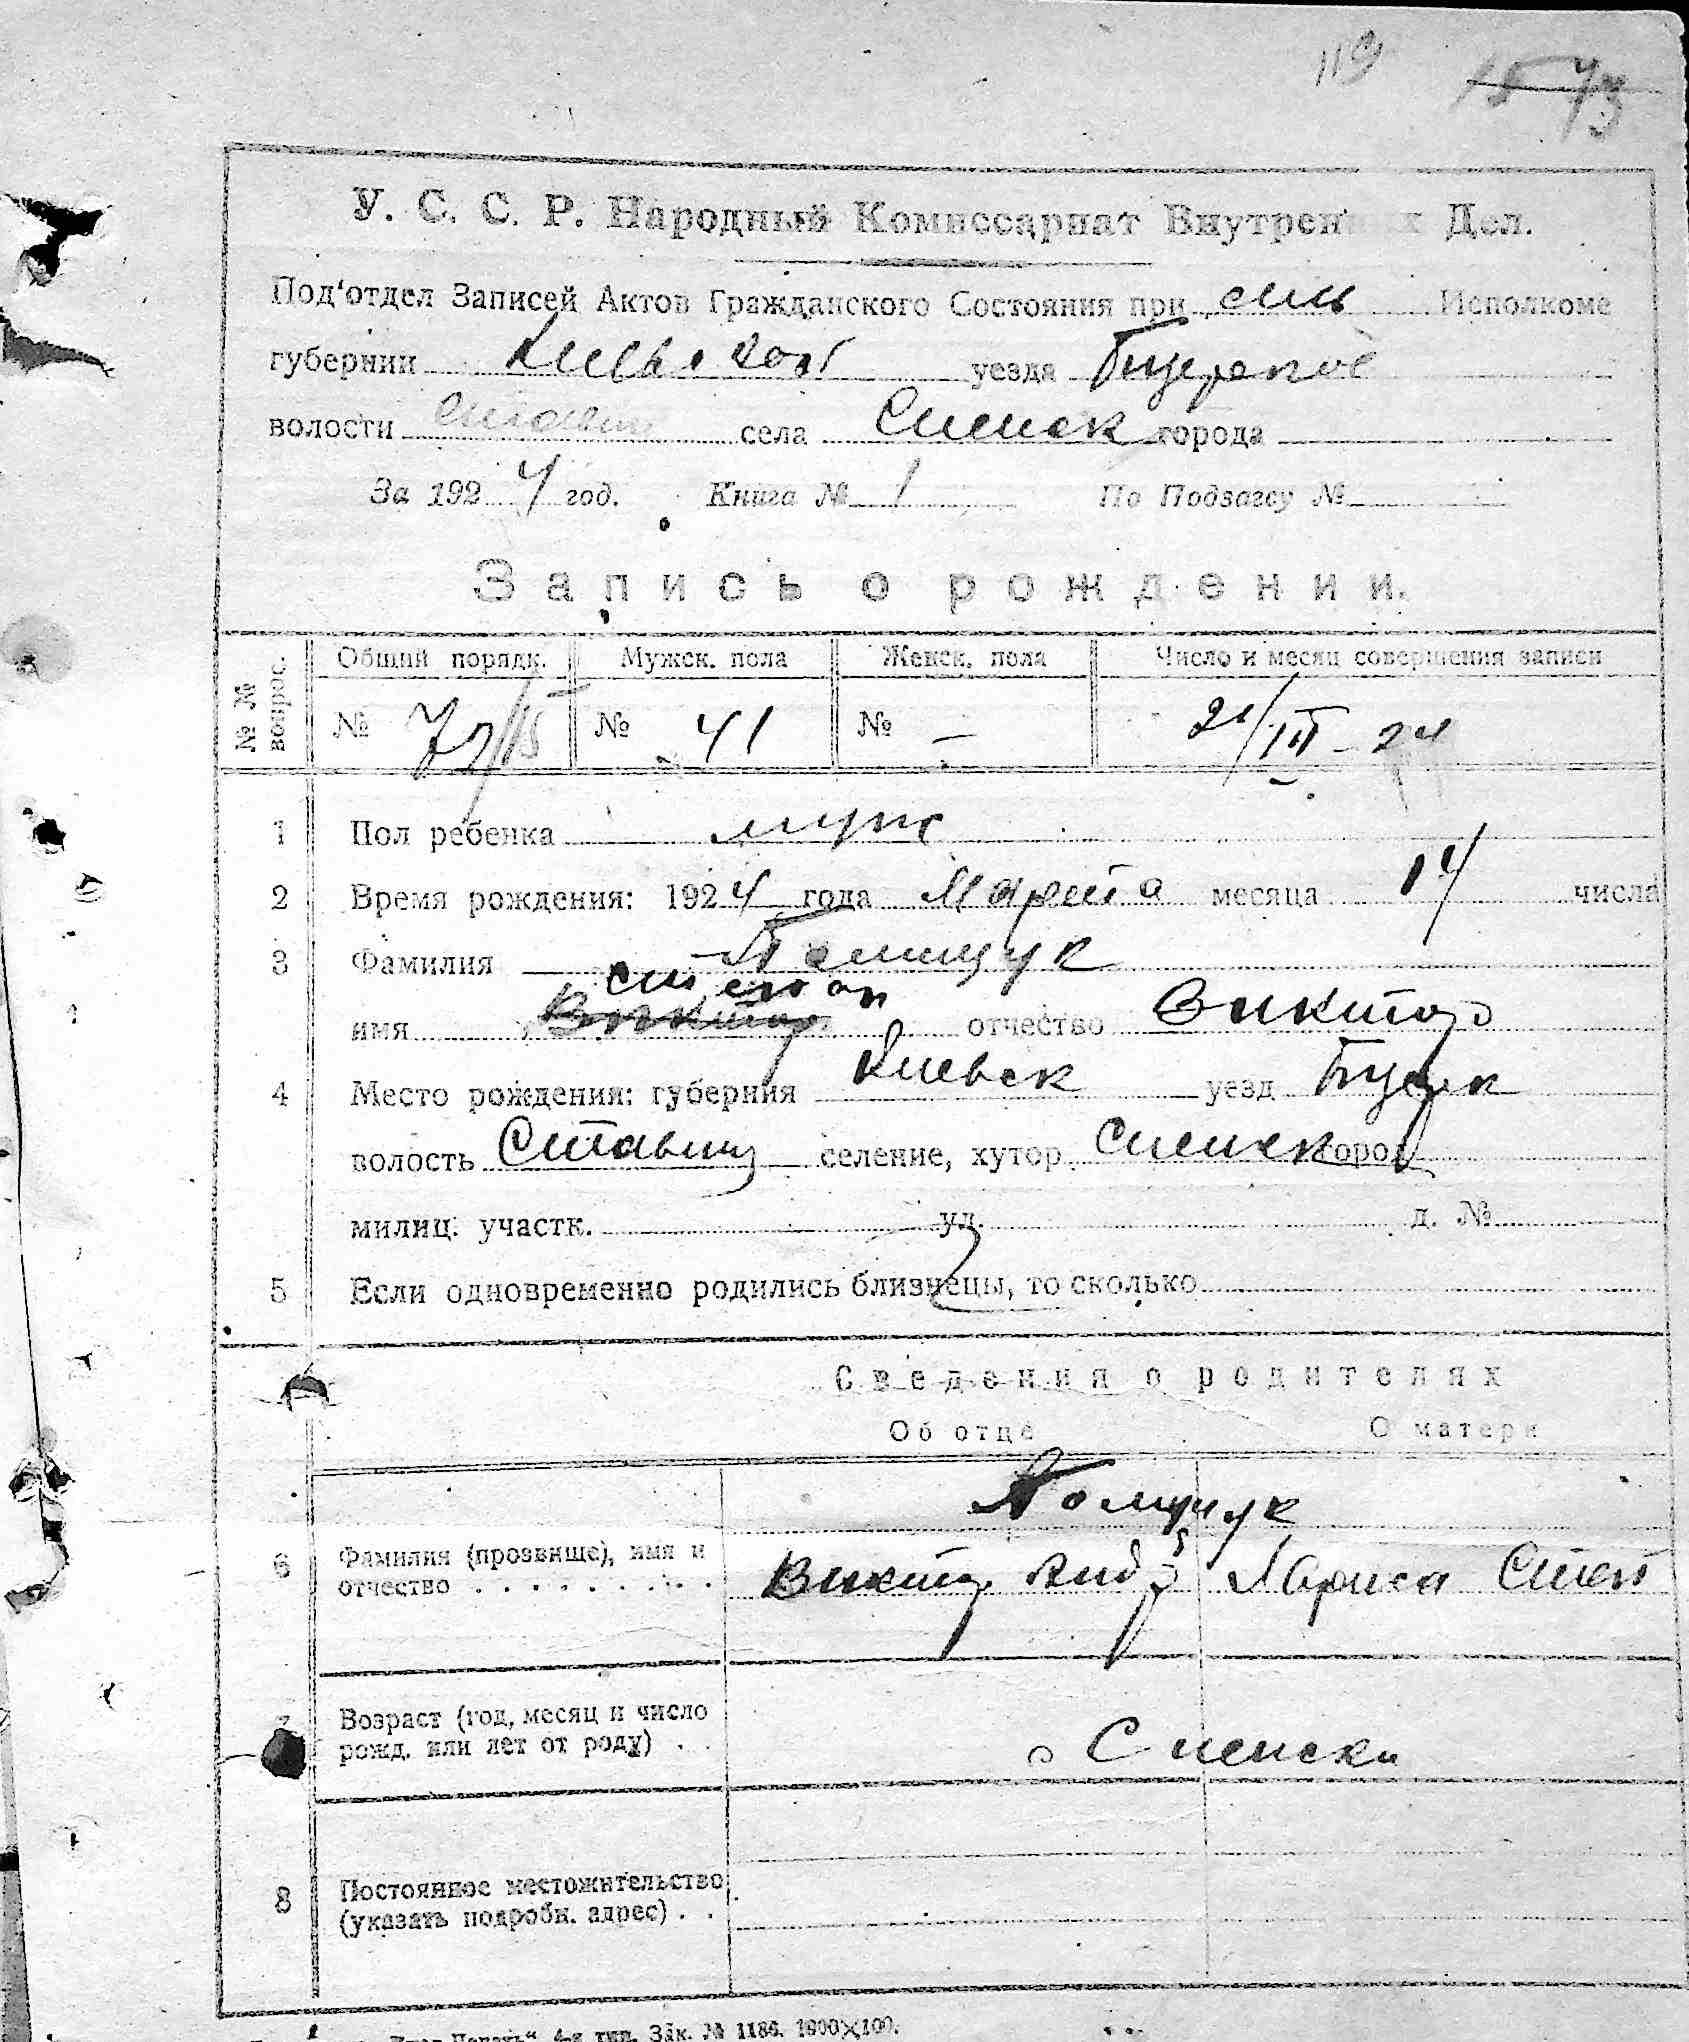 119 15 73
У. С. С. Р. Народный Комиссариат Внутрен х Дел.
Под'отдел Записей Актов Гражданского Состояния при Исполкоме
губернии уезда
волости села города
За 1924 год. Книга № 1 По Подзагсу №
Запись о рождении.
№ № вопрос. Общий порядк. Мужск. пола Женск. пола Число и месяц совершения записи
№ № 41 № — 21/III - 24
1 Пол ребенка муж
2 Время рождения: 1924 года Марта месяца 14 числа
3 Фамилия
Степан
имя Виктор отчество Виктор
4 Место рождения: губерния Киевск уезд
волость Ставищ селение, хутор город
милиц. участк. ул. д. №
5 Если одновременно родились близнецы, то сколько
Сведения о родителях
Об отце О матери
6 Фамилия (прозвище), имя и
отчество . . . . . . . . . Виктор Андр Лариса Степ
7 Возраст (год, месяц и число
рожд. или лет от роду) . .
8 Постоянное местожительство
(указать подробн. адрес) . .
4-я тип. Зак. № 1186. 1900×100.